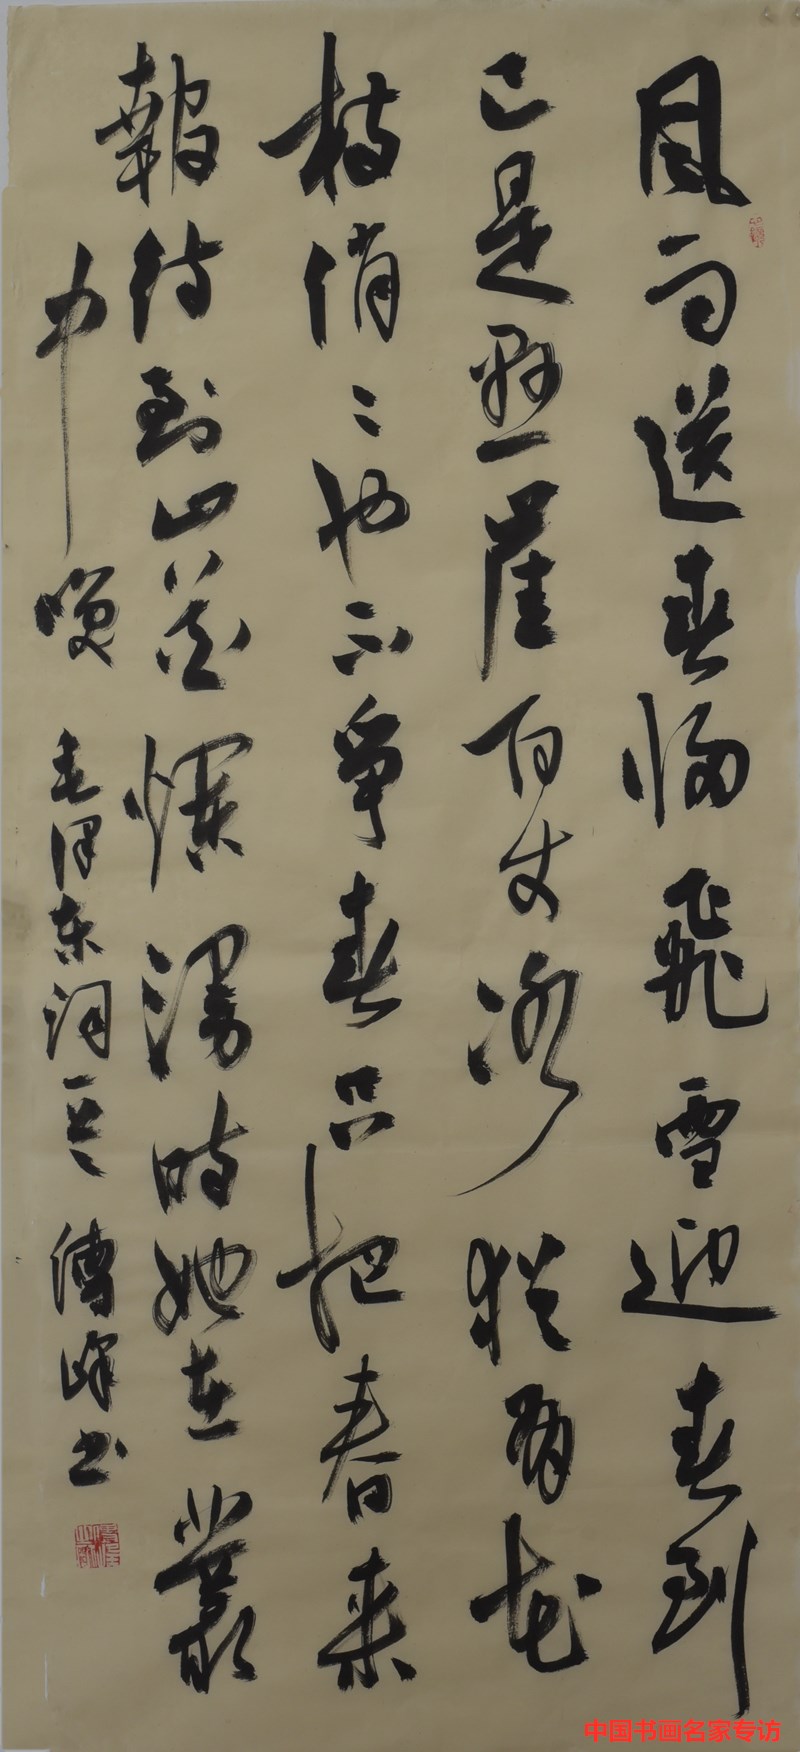 風雨送春歸飛雪迎春到
已是懸崖百丈冰猶有花
枝俏〻也不爭春只把春来
報待到山花爛漫時她在叢
中笑
毛泽东词一首 傅峰书
中国书画名家专访